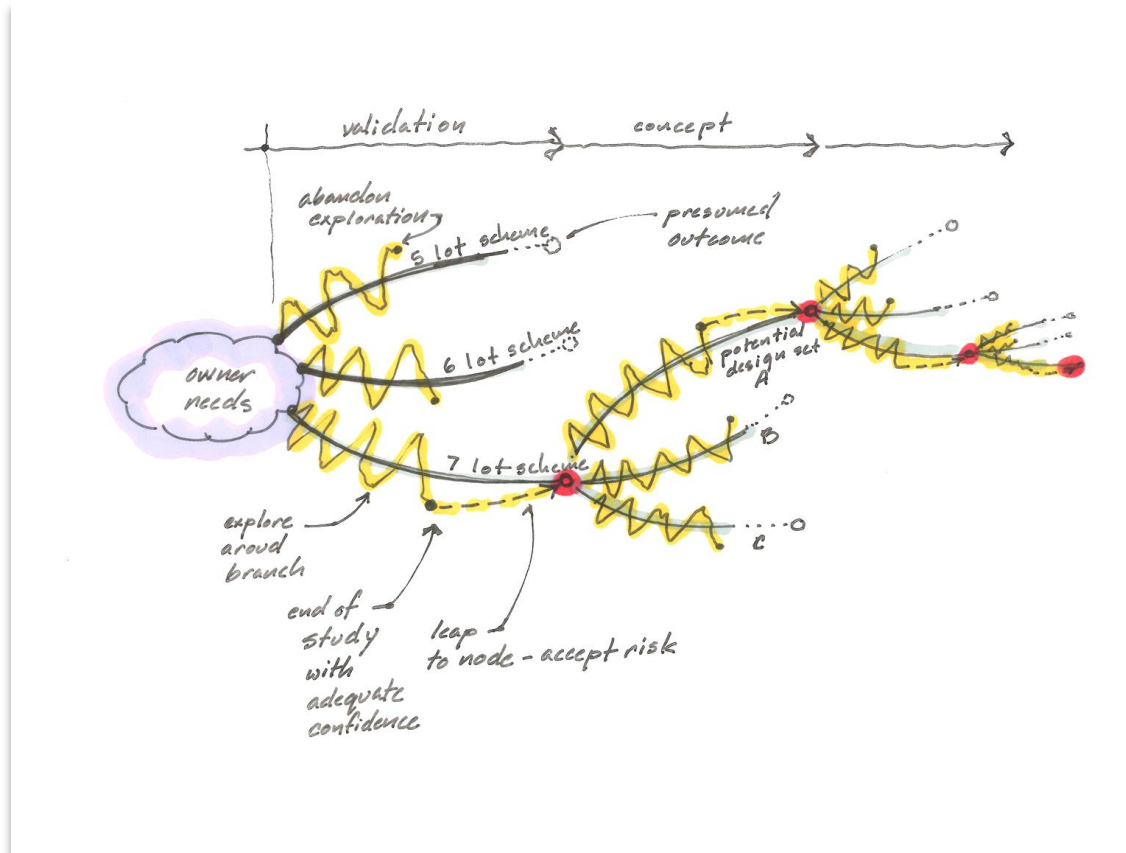 validation
concept
abandon
exploration
presumed
outcome
5 lot scheme
6 lot scheme
owner
needs
potential
design set
A
B
7 lot scheme
C
explore
aroud
branch
end of
study
with
adequate
confidence
leap
to node - accept risk